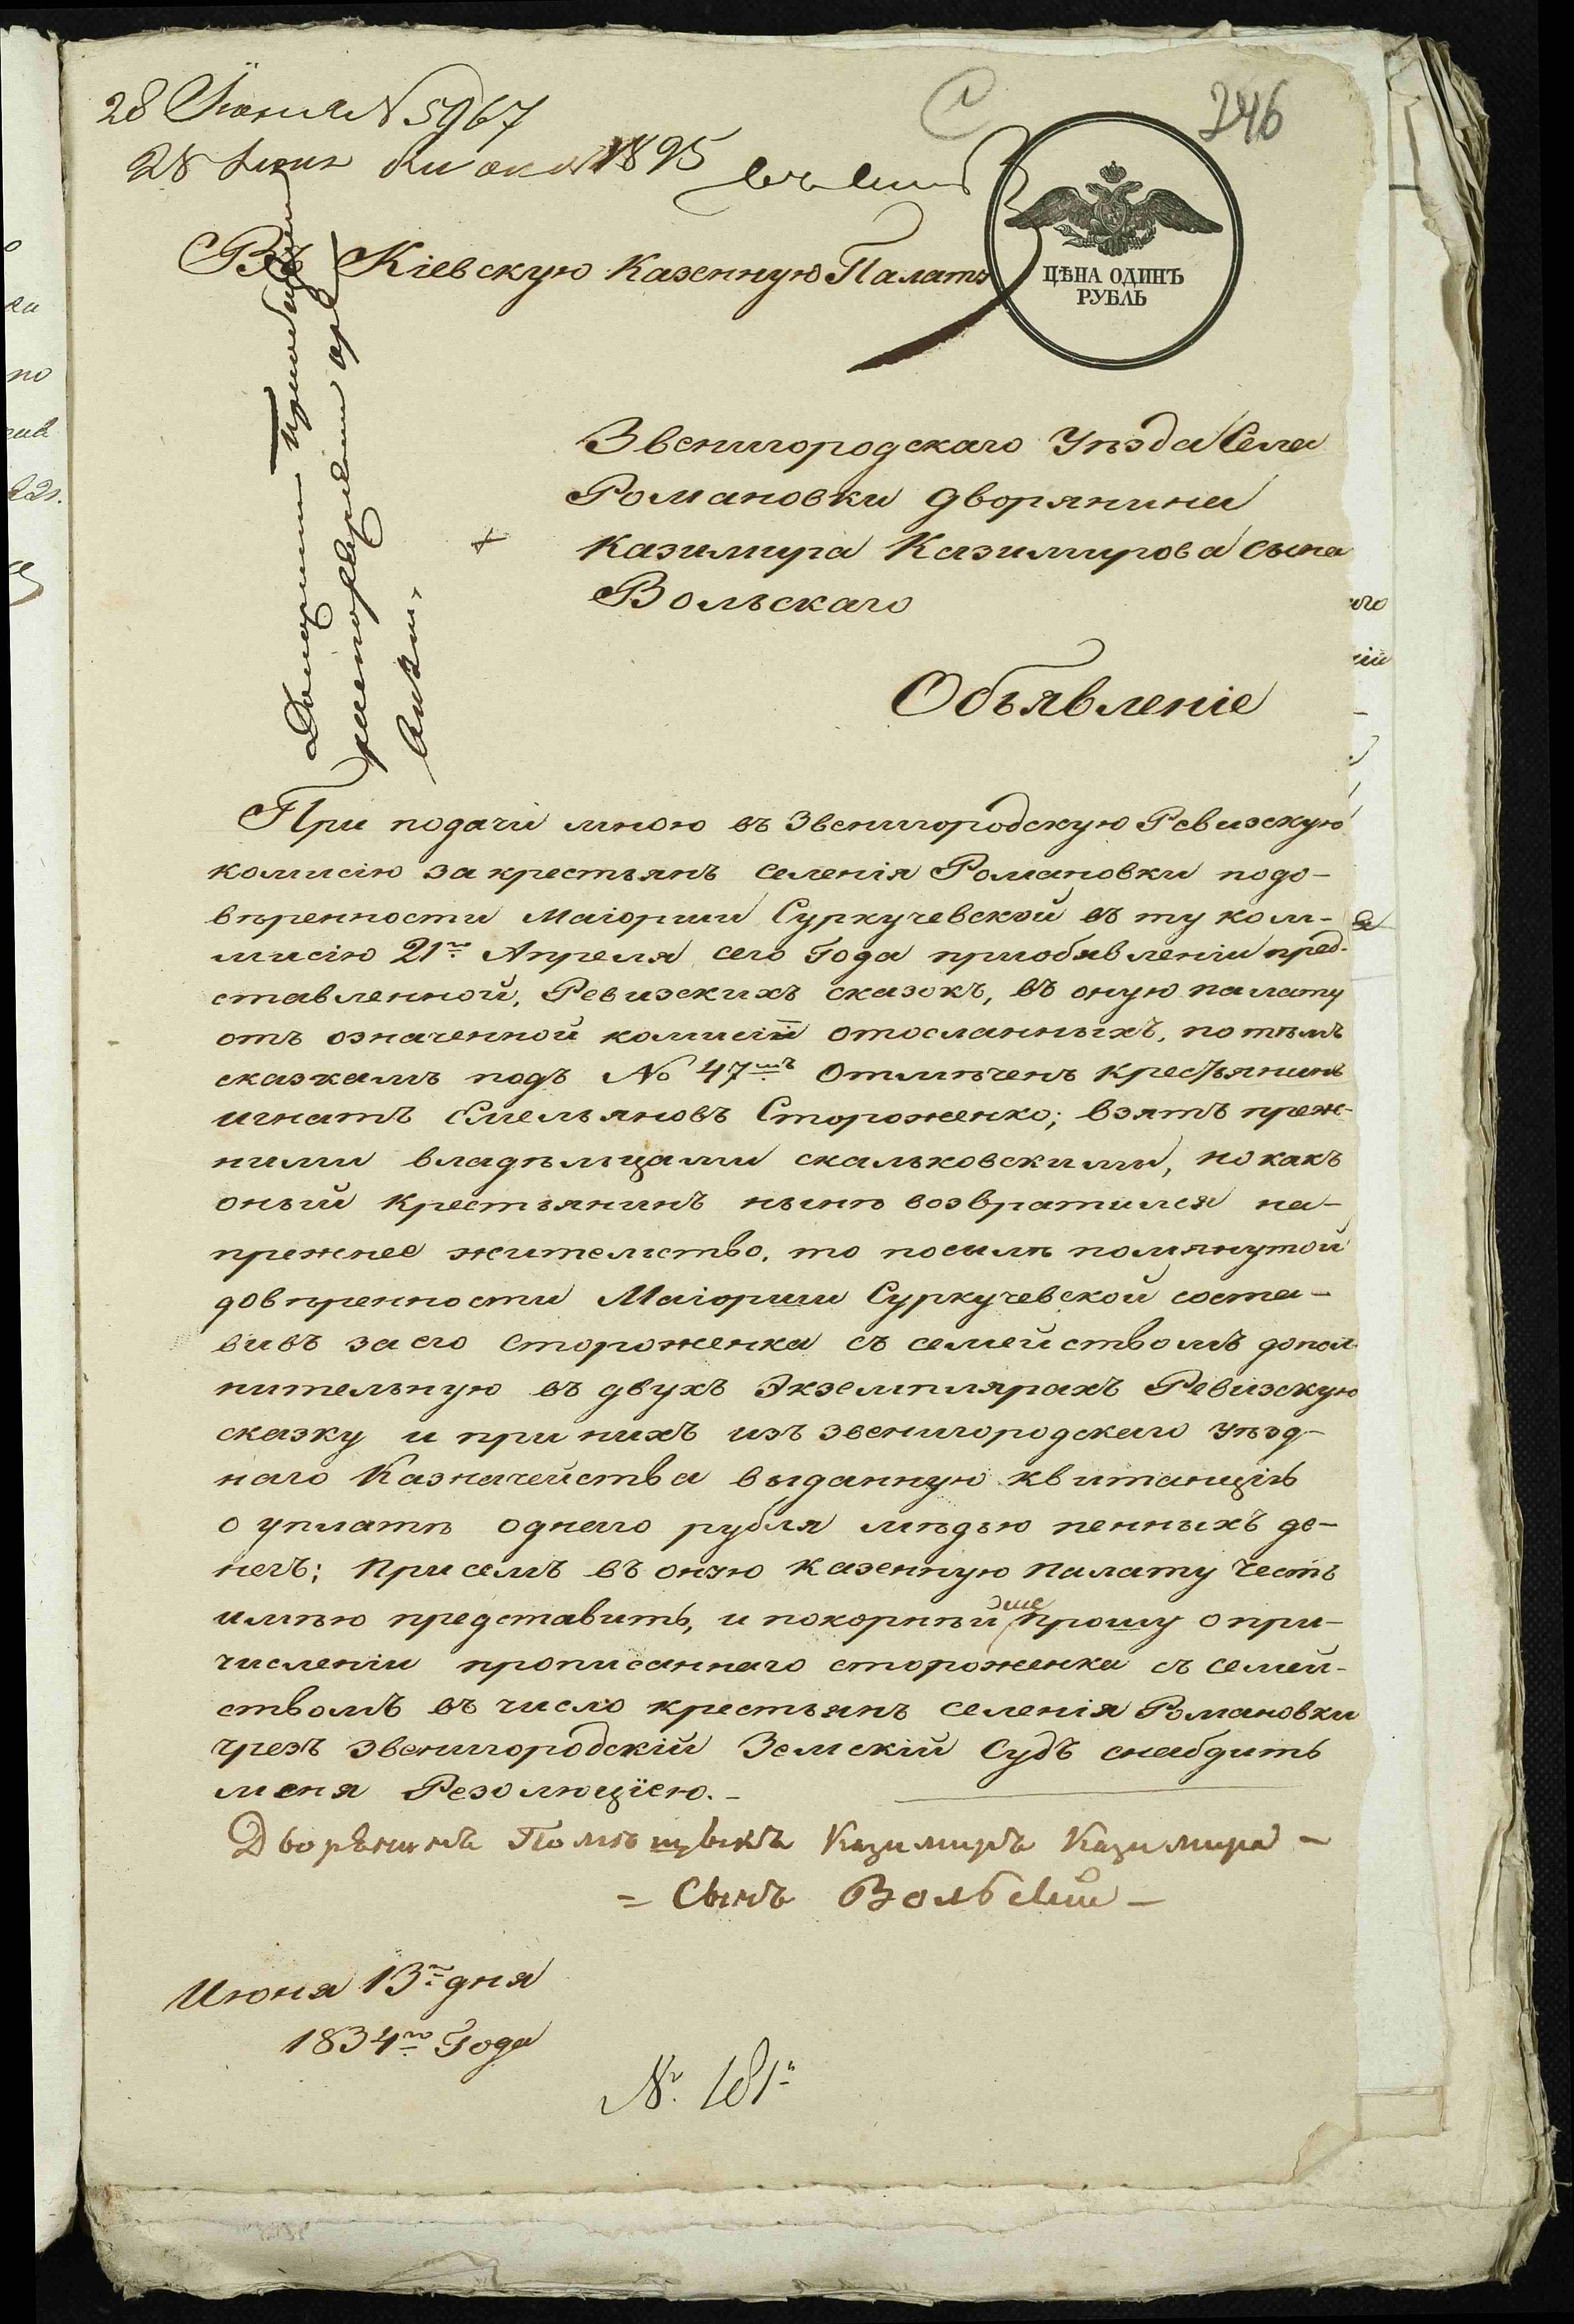 28 Іюня № 5967
246
28 Іюня 1895
Въ Кіевскую Казенную Палату
ЦѢНА ОДИНЪ
РУБЛЬ
Звенигородскаго Уѣзда Села
Романовки дворянина
Казимира Казимирова сына
Вольскаго
Объявленіе
При подачи мною въ Звенигородскую Ревизскую
комисію за крестьянъ селенія Романовки подо-
вѣренности Маіорши Суркучевской въ ту ком-
мисію 21го Апреля сего Года приобявленіи пред-
ставленной, Ревизскихъ сказокъ, въ оную палату
отъ означенной комисіи отосланныхъ, по тѣмъ
сказкамъ подъ № 47мъ Отмѣченъ крестьянинъ
игнатъ Емельяновъ Стороженко; взятъ преж-
ними владѣльцами скальковскими, но какъ
оный крестьянинъ нынѣ возвратился на-
прежнее жительство, то посилѣ помянутой
довѣренности Маіорши Суркучевской соста-
вивъ за его стороженка съ семействомъ допол-
нительную въ двухъ Экземплярахъ Ревизскую
сказку и при нихъ изъ звенигородскаго уѣзд-
наго Казначейства выданную квитанцію
о уплатѣ однаго рубля мѣдью пенныхъ де-
негъ; При семъ въ оную казенную Палату честь
имѣю представить, и покорнѣйше прошу о при-
численіи прописаннаго стороженка съ семей-
ствомъ въ число крестьянъ селенія Романовки
чрезъ звенигородскій Земскій Судъ снабдить
меня Резолюціею.-
Дворянинъ Помѣщикъ Казимиръ Казимира -
= Сынъ Вольскій -
Июня 13го дня
1834го Года
№. 181й